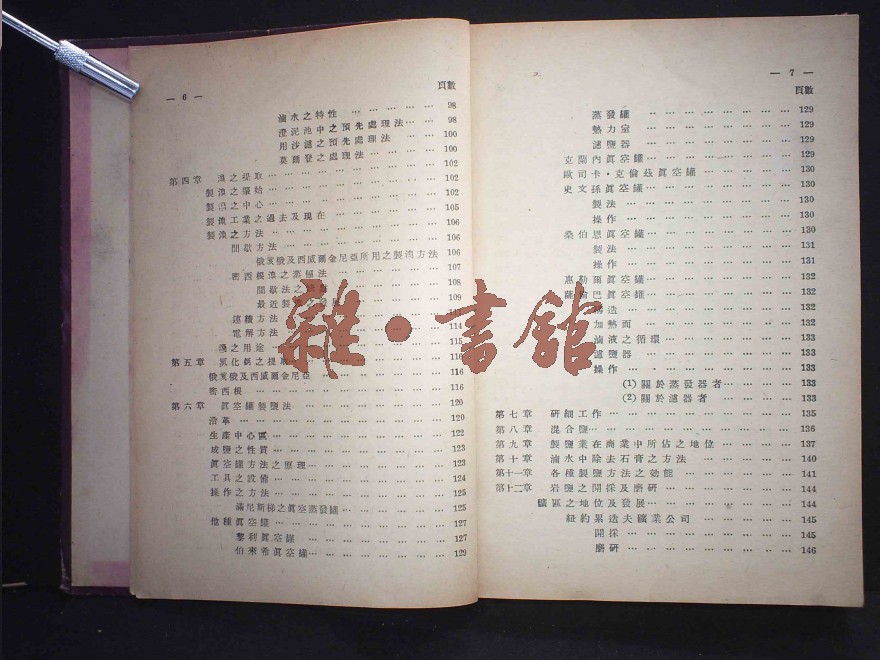 — 6 —
頁數
滷水之特性 … … … … … 98
澄泥池中之預先處理法… … 98
用沙濾之預先處理法 … … 100
莫爾登之處理法 … … … … 100
第四章 溴之提取… … … … … … … … … … 102
製溴之肇始… … … … … … … … … … 102
製溴之中心… … … … … … … … … … 105
製溴工業之過去及現在 … … … … … … 106
製溴之方法… … … … … … … … … … 106
間歇方法… … … … … … … … … 106
俄亥俄及西威爾金尼亞所用之製溴方法 106
密西根溴之蒸餾法 … … … … … 107
間歇法之 … … 108
最近製 109
連續方法 114
電解方法 … 115
溴之用途 … 116
第五章 氯化鈣之提取… 116
俄亥俄及西威爾金尼亞 … … … … … 116
密西根 … … … … … … … … 116
第六章 眞空罐製鹽法… … … … … … … 120
沿革… … … … … … … … … … 120
生產中心區… … … … … … … … 122
成鹽之性質… … … … … … … … 123
眞空罐方法之原理… … … … … … 123
工具之設備… … … … … … … … 124
操作之方法… … … … … … … … 125
滿尼斯梯之眞空蒸發罐… … … … 125
他種眞空罐… … … … … … … … 127
黎利眞空罐 … … … … … … … 127
伯來希眞空罐… … … … … … … 129
— 7 —
頁數
蒸發罐 … … … … … … … 129
熱力室 … … … … … … … 129
濾鹽器 … … … … … … … 129
克蘭內眞空罐 … … … … … … … 129
歐司卡·克倫茲眞空罐… … … … … 130
史文孫眞空罐… … … … … … … 130
製法… … … … … … … … 130
操作… … … … … … … … 130
桑伯恩眞空罐… … … … … … … 130
製法… … … … … … … … 131
操作… … … … … … … … 131
惠勒爾眞空罐… … … … … … … 132
薩倫巴眞空罐… … … … … … … 132
構造… … … … … … … … 132
加熱面 … … … … … … … 132
滷液之循環… … … … … … 133
濾鹽器 … … … … … … … 133
操作… … … … … … … … 133
(1) 關於蒸發器者… … … … 133
(2) 關於濾器者 … … … … 133
第七章 研細工作… … … … … … … … … … 135
第八章 混合鹽… … … … … … … … … … 136
第九章 製鹽業在商業中所佔之地位 … … … … … 137
第十章 滷水中除去石膏之方法 … … … … … … 140
第十一章 各種製鹽方法之効能 … … … … … … … 141
第十二章 岩鹽之開採及磨研… … … … … … … … 144
鑛區之地位及發展… … … … … … … 144
紐約累造夫鑛業公司 … … … … … 145
開採… … … … … … … … … 145
磨研… … … … … … … … … 146
雜·書舘